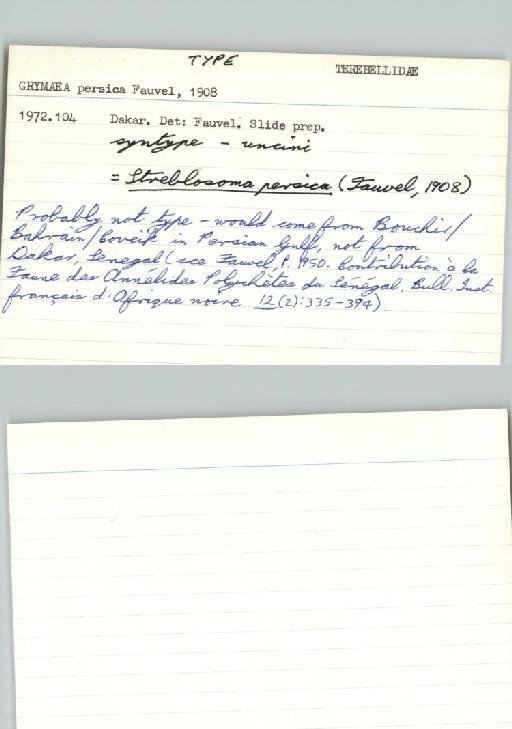 TYPE
TEREBELLIDAE
GRYMAEA persica Fauvel, 1908
1972.104 Dakar. Det: Fauvel. Slide prep.
syntype - uncini
= Streblosoma persica (Fauvel, 1908)
Probably not type - would come from Bouchir/
Bahrain/Coveik in Persian Gulf, not from
Dakar, Senegal (see Fauvel, P. 1950. Contribution à la
Faune des Annélides Polychètes du Sénégal. Bull. Inst.
français d'Afrique noire 12(2):335-394).